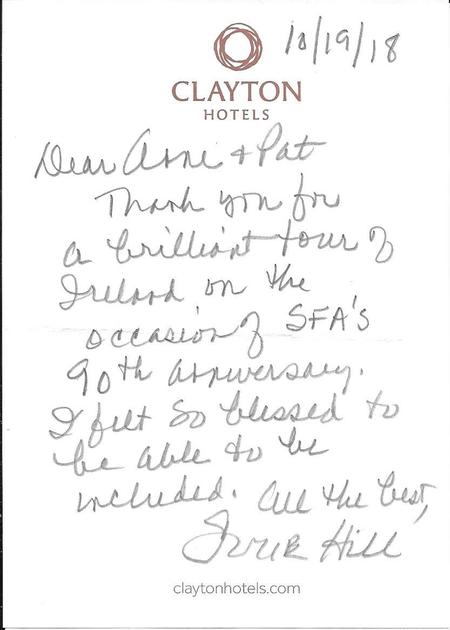 10/19/18
CLAYTON
HOTELS
Dear Anne & Pat
Thank you for
a brilliant tour of
Ireland on the
occasion of SFA's
90th anniversary.
I felt so blessed to
be able to be
included. All the best,
Hill
claytonhotels.com